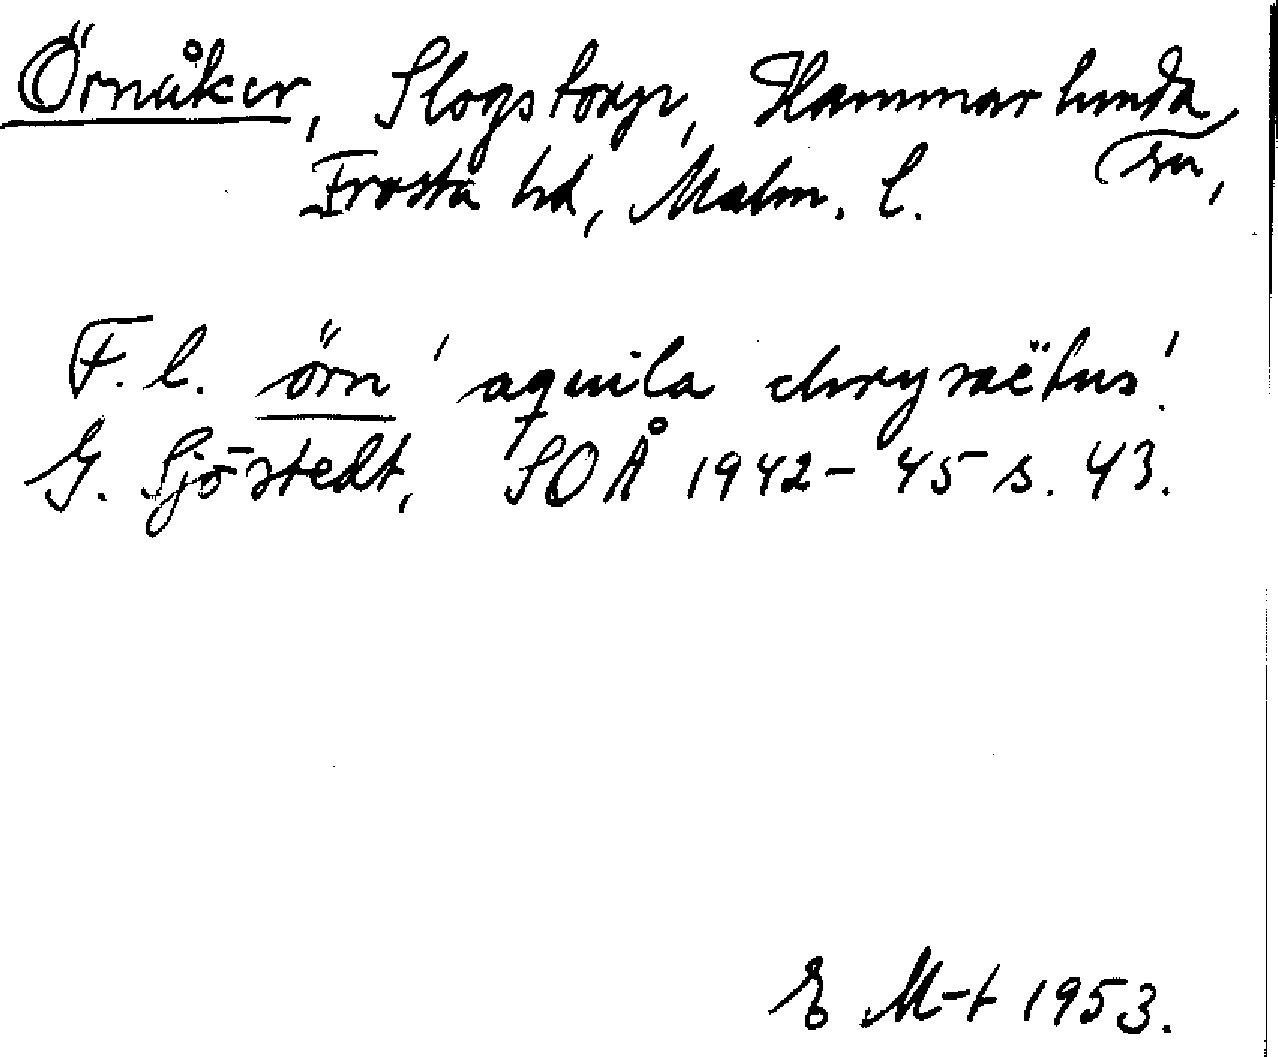 Örnåker, Slogstorp, Hammarlunda
sn,
Frosta hd, Malm. l.
F. l. örn 'aquila chrysaëtus'.
G. Sjöstedt, SOÅ 1942-45 s. 43.
E M-t 1953.